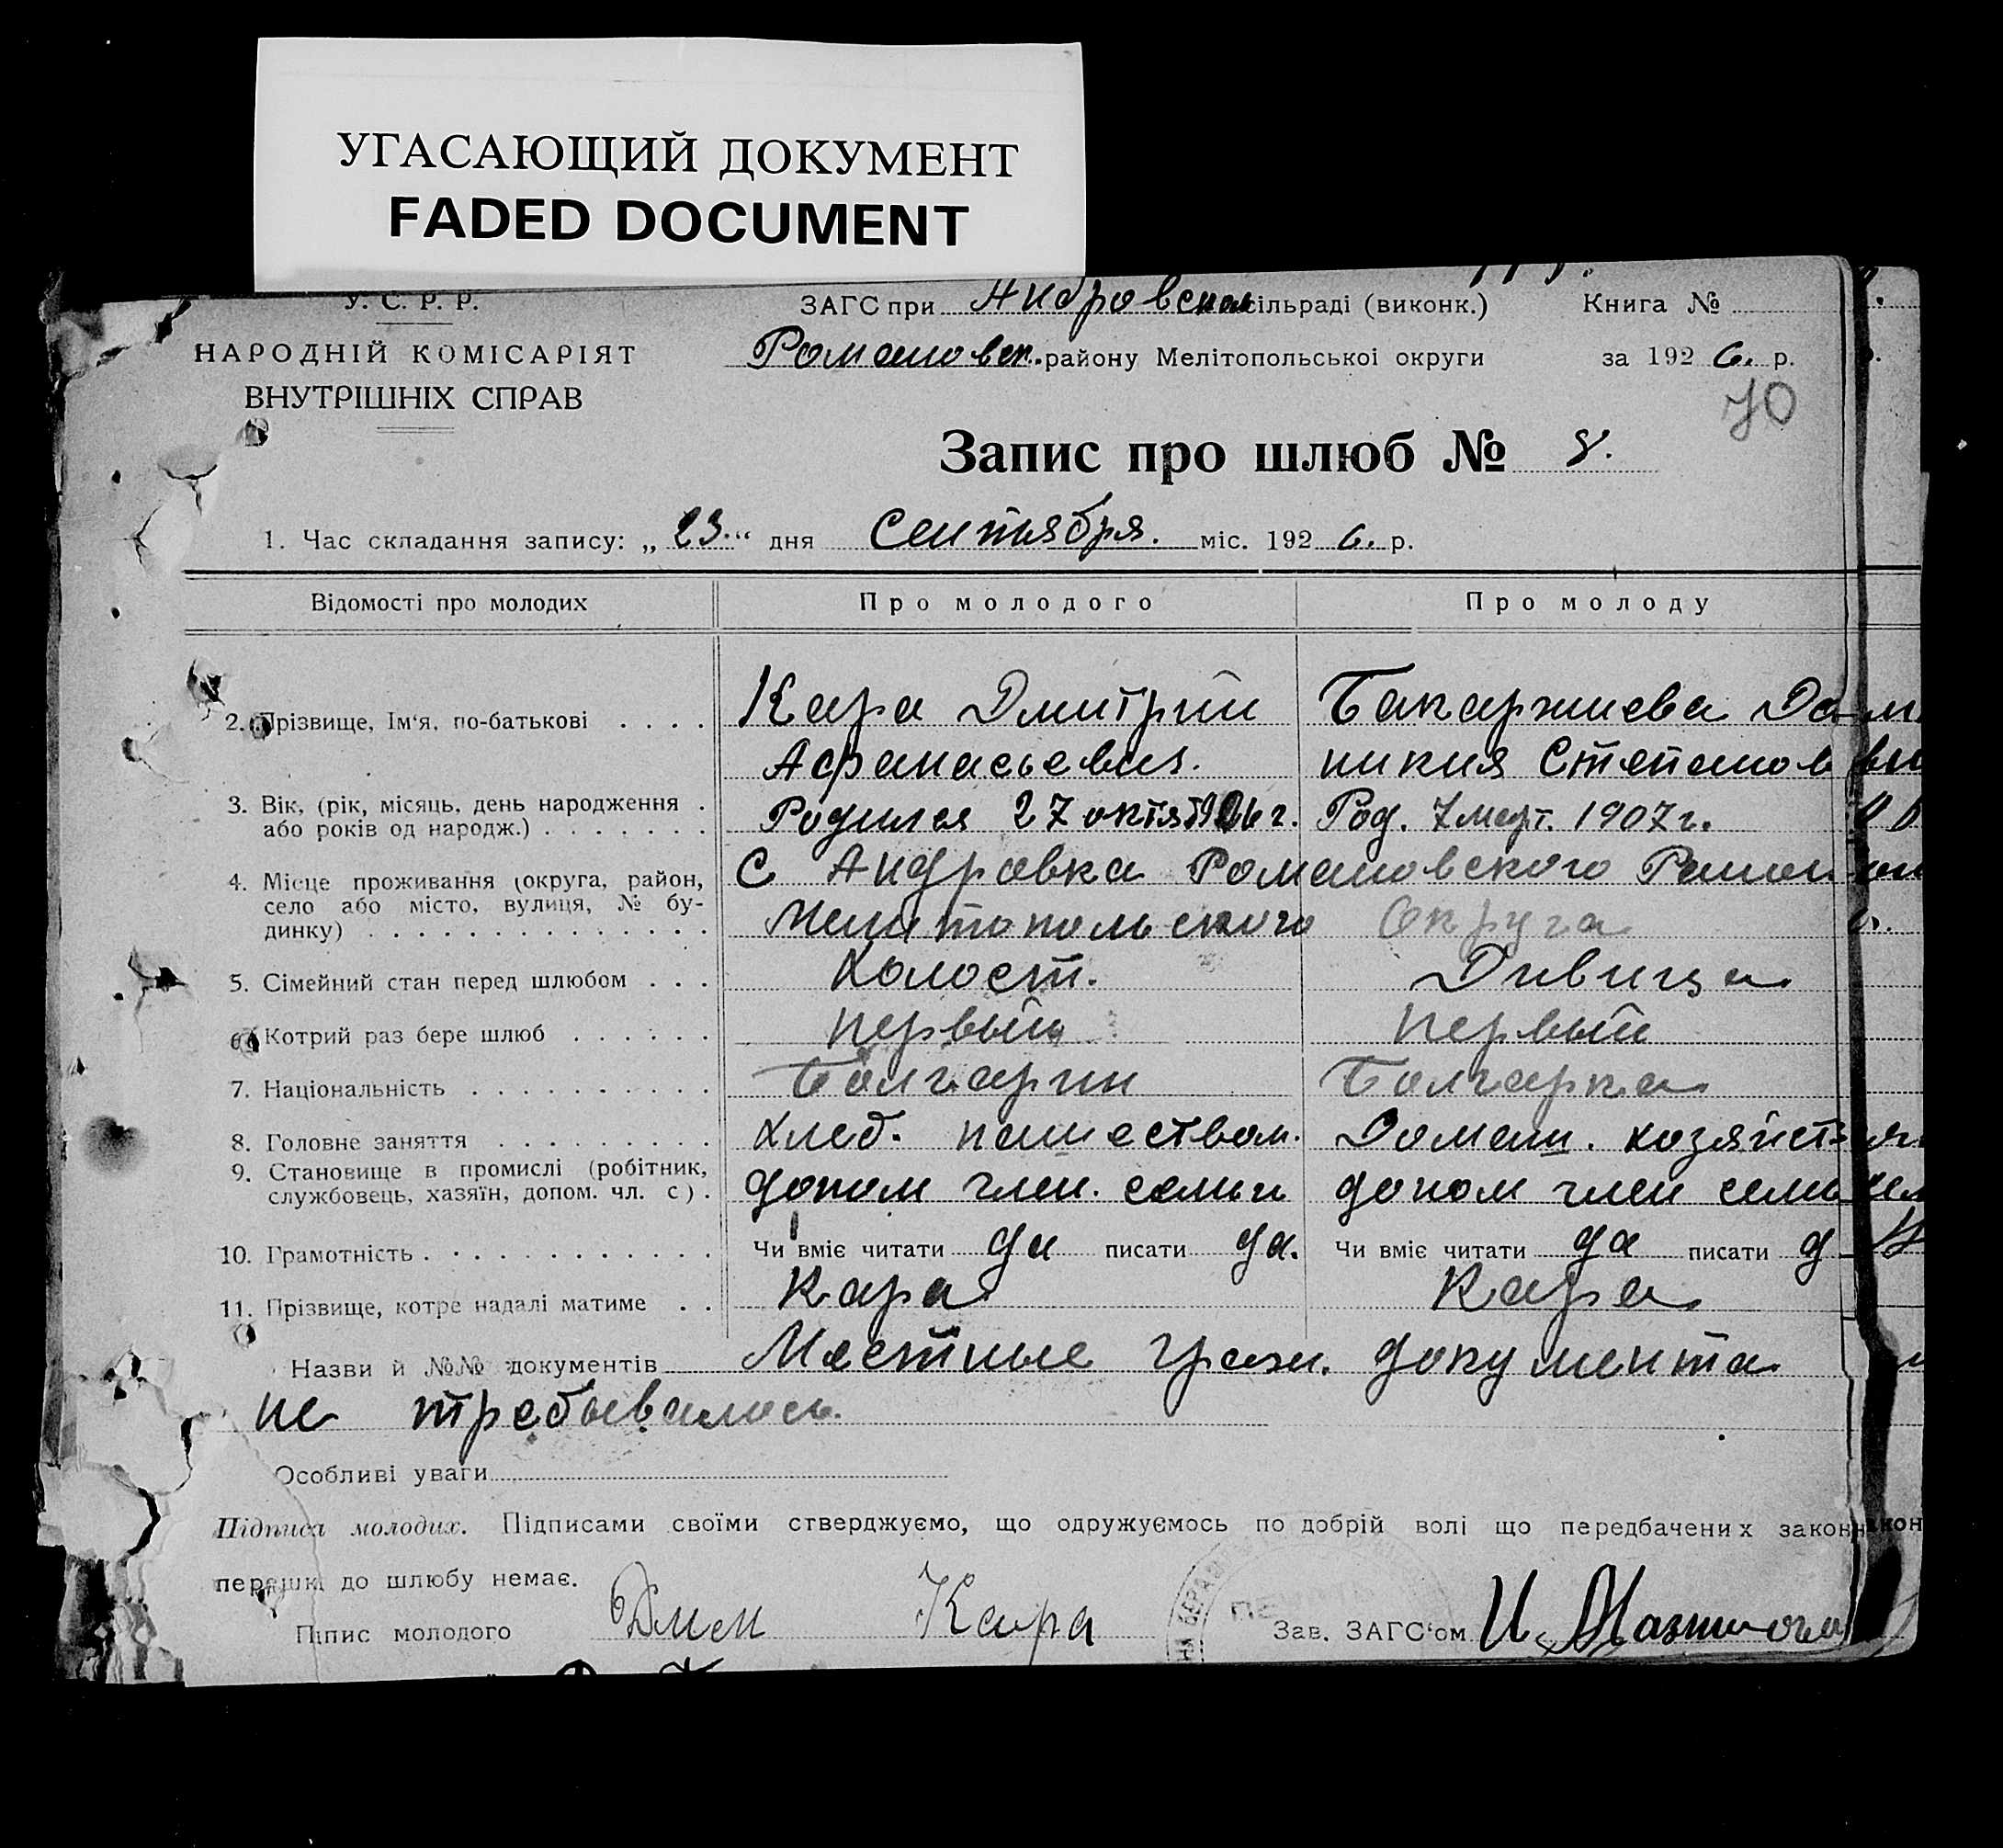 УГАСАЮЩИЙ ДОКУМЕНТ
FADED DOCUMENT
У. С. Р. Р.
НАРОДНІЙ КОМІСАРІЯТ
ВНУТРІШНІХ СПРАВ
ЗАГС при Андровском сільраді (виконк.) Книга №
Романовск. району Мелітопольської округи за 1926. р.
70
Запис про шлюб № 8.
1. Час складання запису: „23.“ дня Сентября. міс. 1926. р.
Відомості про молодих Про молодого Про молоду
2. Прізвище, Ім‘я, по-батькові . . . . Кара Дмитрий Бакаржиева До
Афанасьевич. никия Степанов
3. Вік, (рік, місяць, день народження . Родился 27 октя 1906 г. Род. 7 март. 1907 г.
або років од народж.) . . . . . . .
4. Місце проживання (округа, район, С Андровка Романовского Район
село або місто, вулиця, № бу-
динку) . . . . . . . . . . . . . . Мелитопольского Округа
5. Сімейний стан перед шлюбом . . . Холост. Дивица
6. Котрий раз бере шлюб . . . . . . первый первый
7. Національність . . . . . . . . . . Болгарин Болгарка
8. Головне заняття . . . . . . . . . Хлеб. пашеством. Домаш. хозяйст
9. Становище в промислі (робітник,
службовець, хазяїн, допом. чл. с) . допом член. семьи допом член семь
10. Грамотність . . . . . . . . . . . . Чи вміє читати да писати да. Чи вміє читати да писати д
11. Прізвище, котре надалі матиме . . Кара Кара
Назви й №№ документів Местные граж. документа
не требывалось.
Особливі уваги
Підписи молодих. Підписами своїми стверджуємо, що одружуємось по добрій волі що передбачених законн
перешк. до шлюбу немає.
Підпис молодого Дмит Кара Зав. ЗАГС‘ом И.